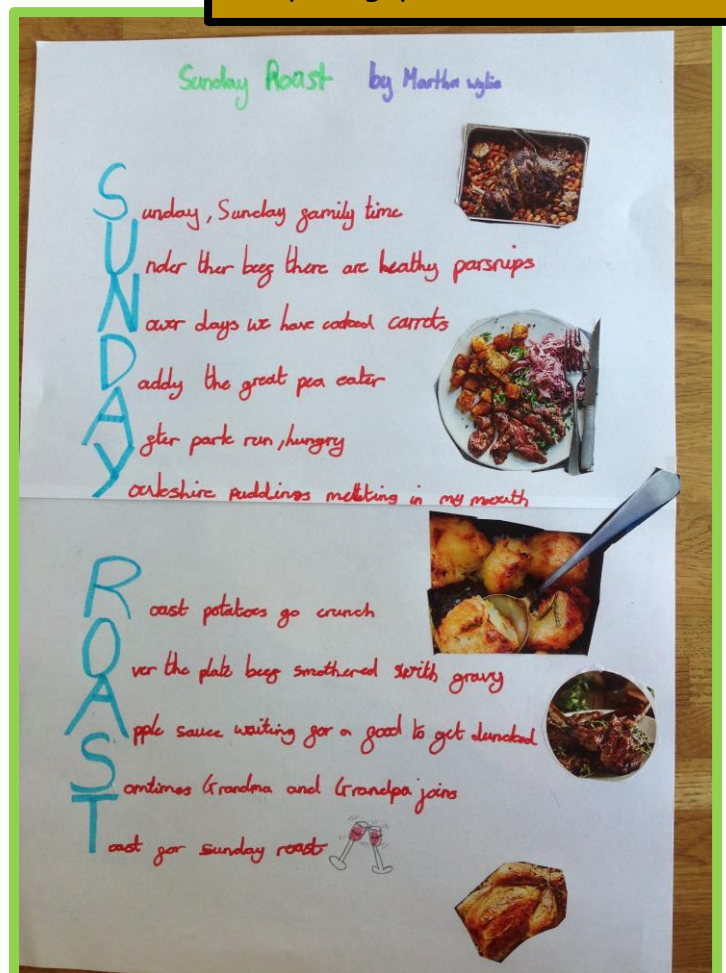 Sunday Roast by Martha Wylie
Sunday, Sunday family time
Under ther beef there are healthy parsnips
Nowr days we have cooked carrots
Daddy the great pea eater
After park run, hungry
Yorkeshire puddings meltting in my mouth
Roast potatoes go crunch
Over the plate beef smothered with gravy
Apple sauce waiting for a food to get duncked
Somtimes Grandma and Grandpa joins
Toast for sunday roast